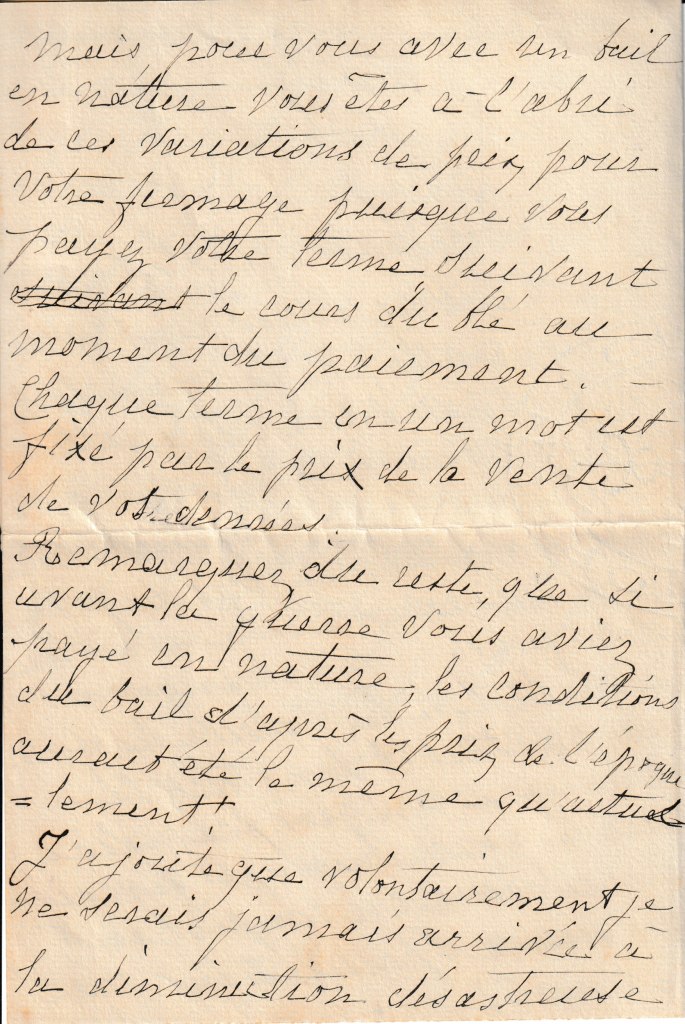 mais, pour vous avec un bail
en nature vous êtes à l'abri
de ces variations de prix, pour
votre fermage puisque vous
payez votre terme, suivant
suivant le cours du blé au
moment du paiement. —
Chaque terme en un mot est
fixé par le prix de la vente
de vos denrées.
Remarquez du reste, que si
avant la guerre vous aviez
payé en nature, les conditions
du bail d'après les prix de l'époque
aurait été le même qu'actuel=
=lement!
J'ajoute que volontairement je
ne serais jamais arrivée à
la diminution désastreuse